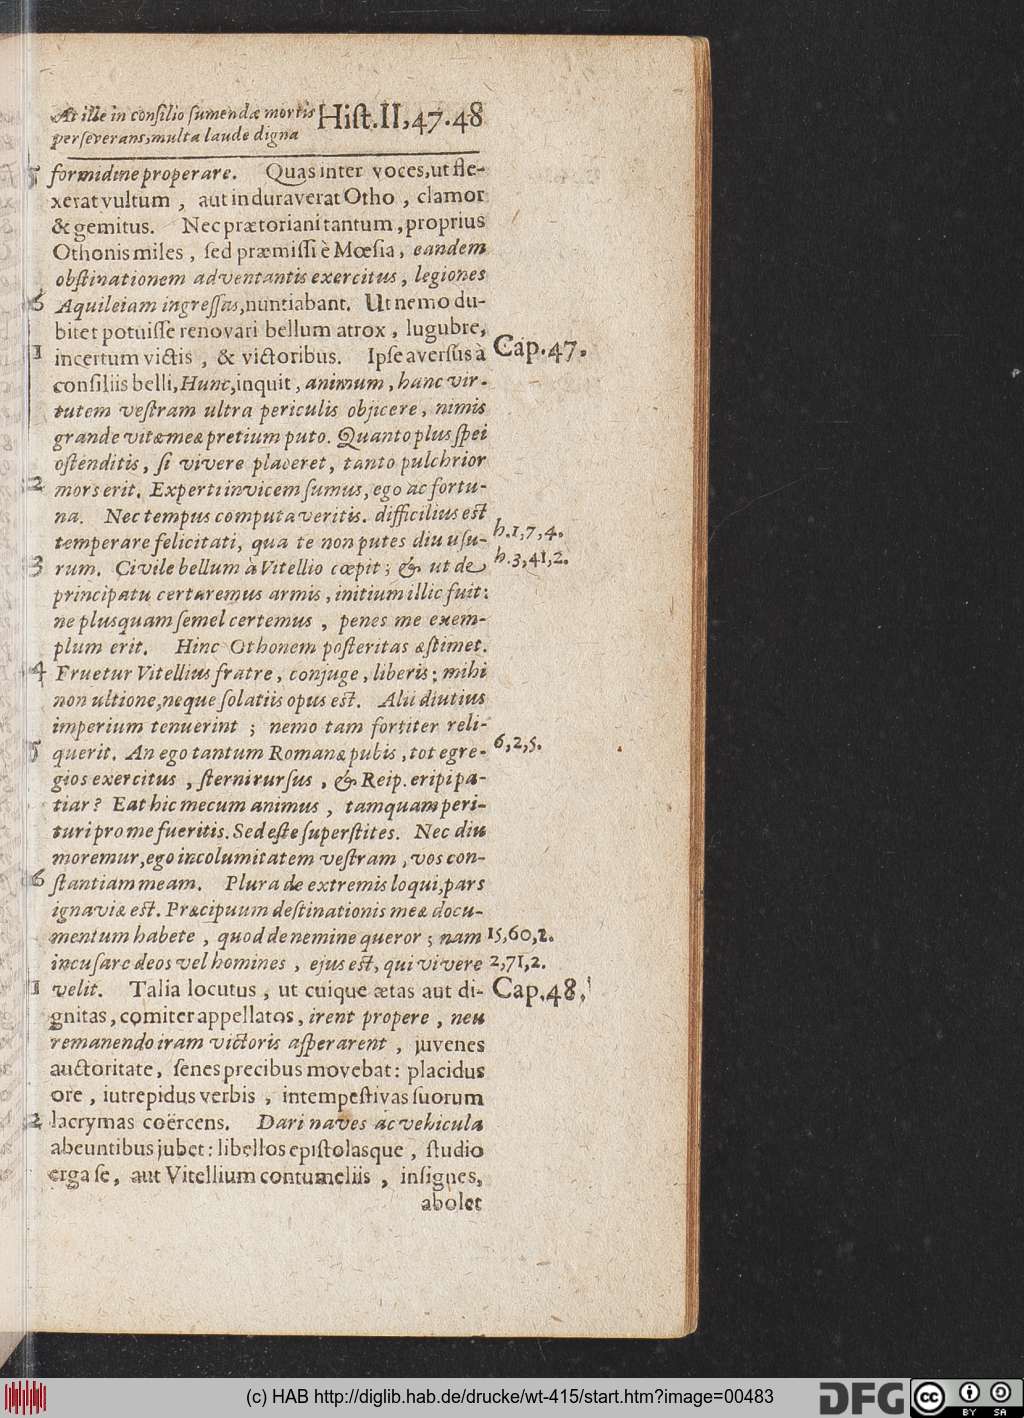 At ille in consilio sumendæ mortis Hist.II,47.48
perseverans,multa laude digna
5 formidine properare. Quas inter voces,ut fle-
xerat vultum , aut induraverat Otho , clamor
& gemitus. Nec prætoriani tantum,proprius
Othonis miles , sed præmissi è Mœsia, eandem
obstinationem adventantis exercitus, legiones
6 Aquileiam ingressas,nuntiabant. Ut nemo du-
bitet potuisse renovari bellum atrox , lugubre,
1 incertum victis , & victoribus. Ipse aversus à Cap.47.
consiliis belli,Hunc,inquit, animum, hanc vir-
tutem vestram ultra periculis objicere, nimis
grande vitæ meæ pretium puto. Quanto plus spei
ostenditis, si vivere placeret, tanto pulchrior
2 mors erit. Experti invicem sumus, ego ac fortu-
na. Nec tempus computaveritis. difficilius est h.1,7,4.
temperare felicitati, qua te non putes diu usu-
3 rum. Civile bellum à Vitellio cœpit; & ut de h.3,41,2.
principatu certaremus armis, initium illic fuit:
ne plusquam semel certemus , penes me exem-
plum erit. Hinc Othonem posteritas æstimet.
4 Fruetur Vitellius fratre, conjuge, liberis; mihi
non ultione,neque solatiis opus est. Alii diutius
imperium tenuerint ; nemo tam fortiter reli-
5 querit. An ego tantum Romanæ pubis, tot egre- 6,2,5.
gios exercitus , sterni rursus , & Reip. eripi pa-
tiar? Eat hic mecum animus , tamquam peri-
turi pro me fueritis. Sed este superstites. Nec diu
moremur,ego incolumitatem vestram, vos con-
6 stantiam meam. Plura de extremis loqui,pars
ignaviæ est. Præcipuum destinationis meæ docu-
mentum habete , quod de nemine queror ; nam 15,60,2.
incusare deos vel homines , ejus est, qui vivere 2,71,2.
1 velit. Talia locutus, ut cuique ætas aut di- Cap.48.
gnitas,comiter appellatos, irent propere , neu
remanendo iram victoris asperarent , juvenes
auctoritate, senes precibus movebat: placidus
ore , iutrepidus verbis , intempestivas suorum
2 lacrymas coërcens. Dari naves ac vehicula
abeuntibus jubet: libellos epistolasque , studio
erga se, aut Vitellium contumeliis , insignes,
abolet
(c) HAB http://diglib.hab.de/drucke/wt-415/start.htm?image=00483 DFG cc BY SA